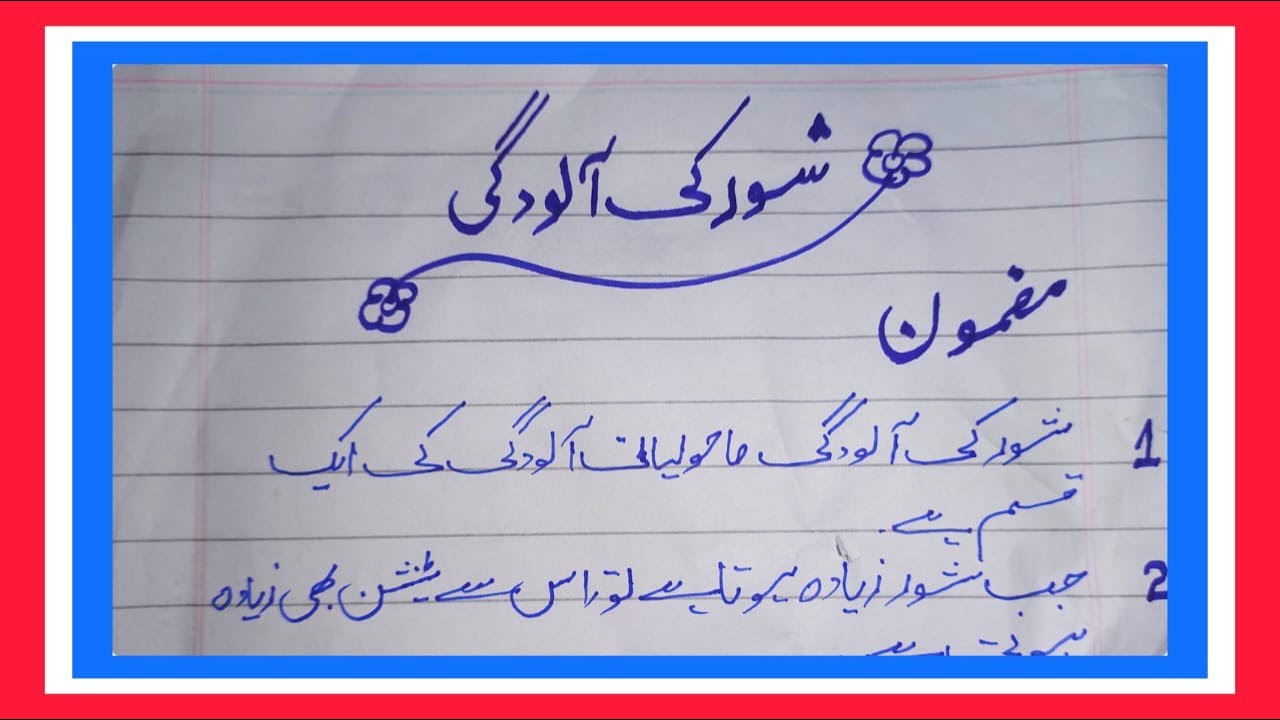 شور کی آلودگی
مضمون
1 شور کی آلودگی ماحولیاتی آلودگی کی ایک
قسم ہے۔
2 جب شور زیادہ ہوتا ہے تو اس سے ٹینشن بھی زیادہ
ہوتی ہے